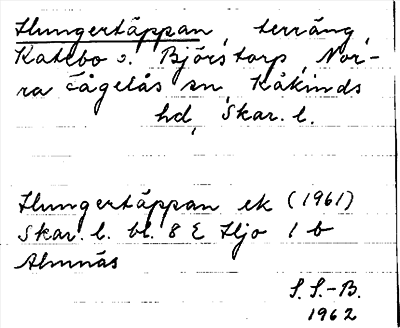 Hungertäppan, terräng,
Katebo o. Björstorp, Nor-
ra Fågelås sn, Kåkinds
hd, Skar. l.
Hungertäppan ek (1961)
Skar. l. bl. 8 E Hjo 1 b
Almnäs
S. S.-B.
1962